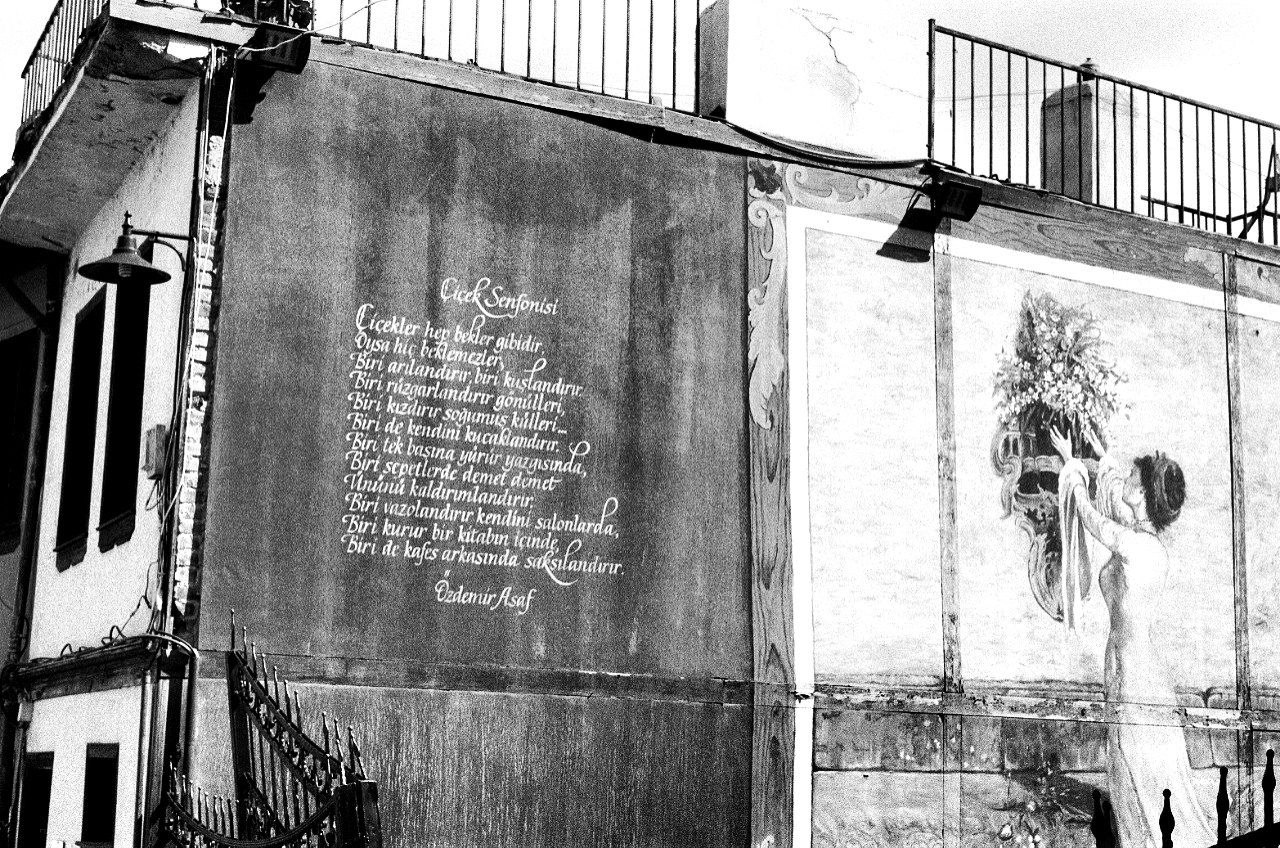 Çiçek Senfonisi
Çiçekler hep bekler gibidir,
Oysa hiç beklemezler,
Biri arılandırır, biri kuşlandırır.
Biri rüzgarlandırır gönülleri,
Biri kızdırır soğumuş külleri...
Biri de kendini kucaklandırır.
Biri tek başına yürür yazgısında,
Biri sepetlerde demet demet
Ününü kaldırımlandırır.
Biri vazolandırır kendini salonlarda,
Biri kurur bir kitabın içinde,
Biri de kafes arkasında saksılandırır.
Özdemir Asaf